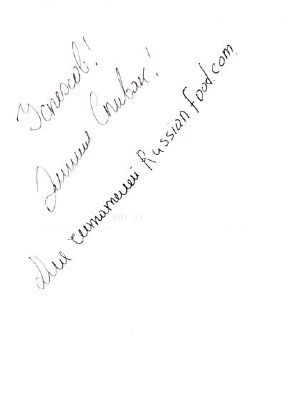 Успехов!
Эмилия Спивак!
Для читателей RussianFood.com